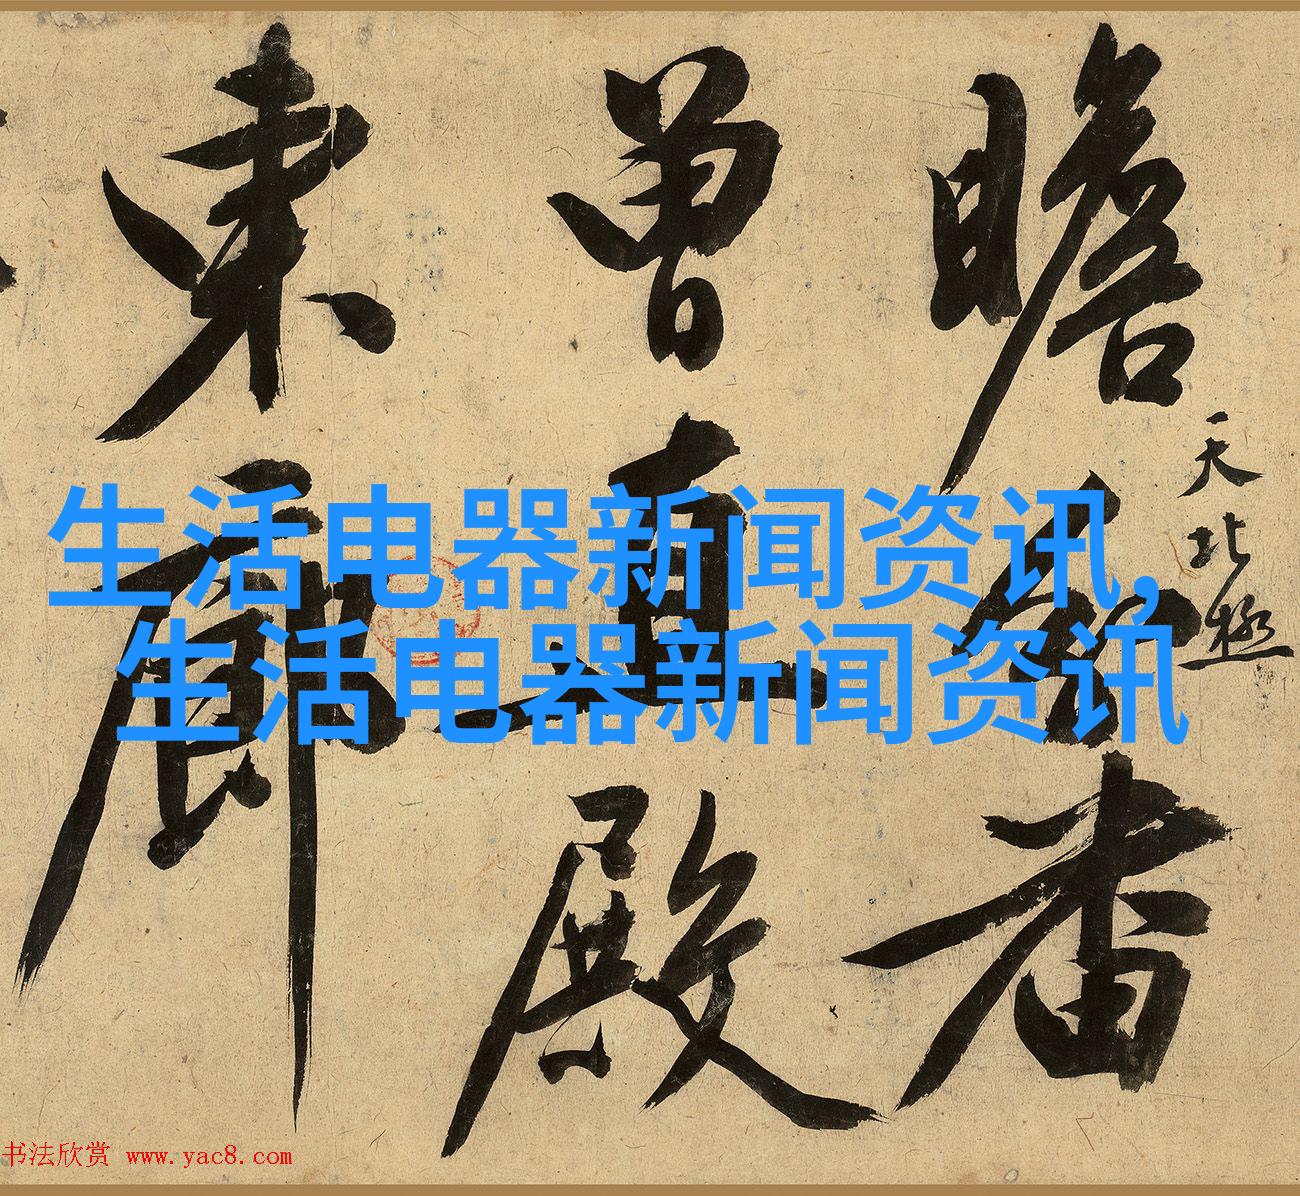 生活电器新闻资讯,
生活电器新闻资讯
瞻
天北極
曾直殿
東廊
书法欣赏 www.yac8.com